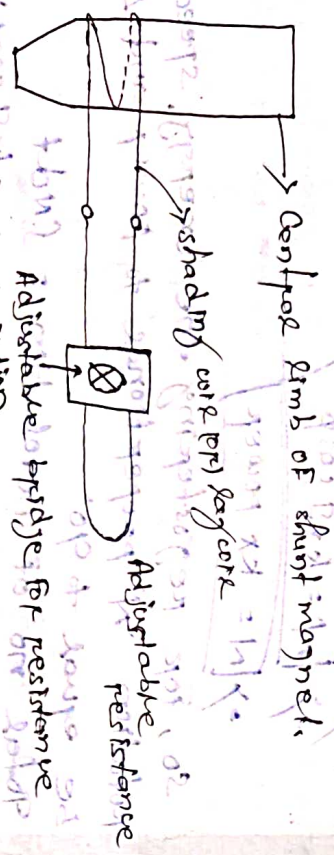 Central limb of shunt magnet.
shading coil (or) lag coil
Adjustable
resistance
Adjustable bridge for resistance